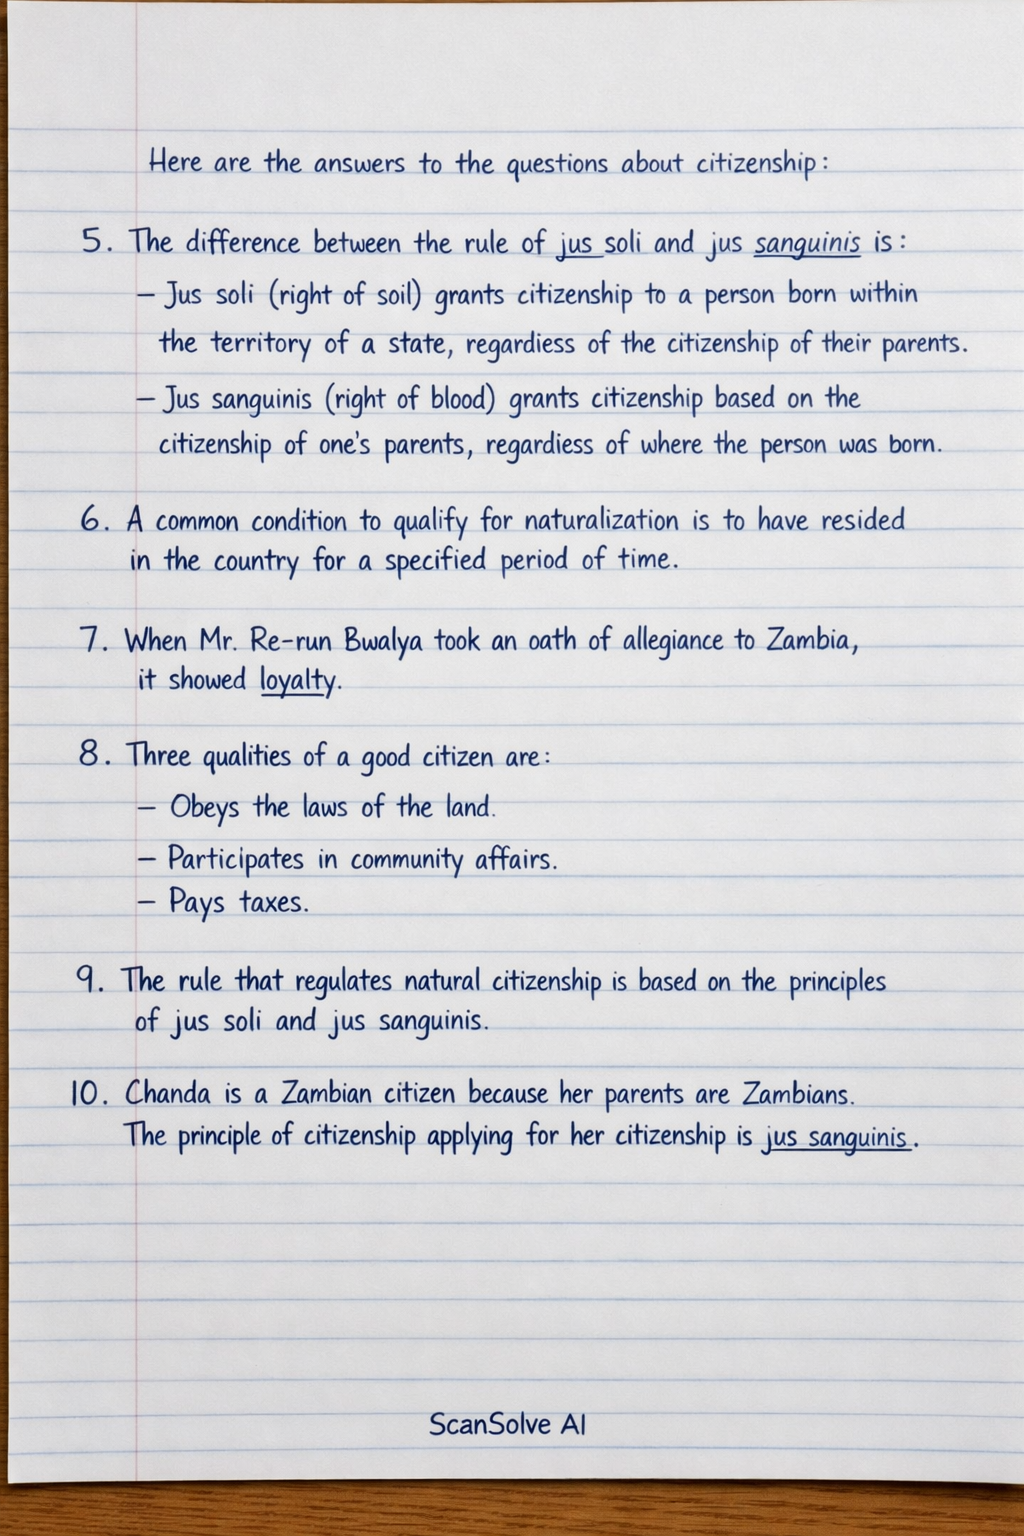 Here are the answers to the questions about citizenship:
5. The difference between the rule of jus soli and jus sanguinis is:
– Jus soli (right of soil) grants citizenship to a person born within
the territory of a state, regardiess of the citizenship of their parents.
– Jus sanguinis (right of blood) grants citizenship based on the
citizenship of one's parents, regardiess of where the person was born.
6. A common condition to qualify for naturalization is to have resided
in the country for a specified period of time.
7. When Mr. Re-run Bwalya took an oath of allegiance to Zambia,
it showed loyalty.
8. Three qualities of a good citizen are:
– Obeys the laws of the land.
– Participates in community affairs.
– Pays taxes.
9. The rule that regulates natural citizenship is based on the principles
of jus soli and jus sanguinis.
10. Chanda is a Zambian citizen because her parents are Zambians.
The principle of citizenship applying for her citizenship is jus sanguinis.
ScanSolve AI